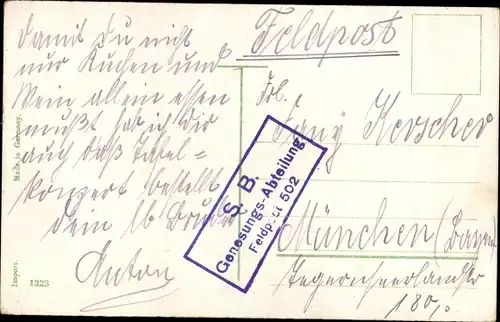 Damit Du nicht
nur Kuchen und
Wein allein essen
mußt hab ich Dir
auch das Tafel=
konzert bestellt
dein lb Bruder
Anton
Feldpost
Frl.
Fany Kerscher
München (Bayern
Tegernseerlandstr
180/0
S. B.
Genesungs-Abteilung
Feldpost 502
Made in Germany.
Import.
1323